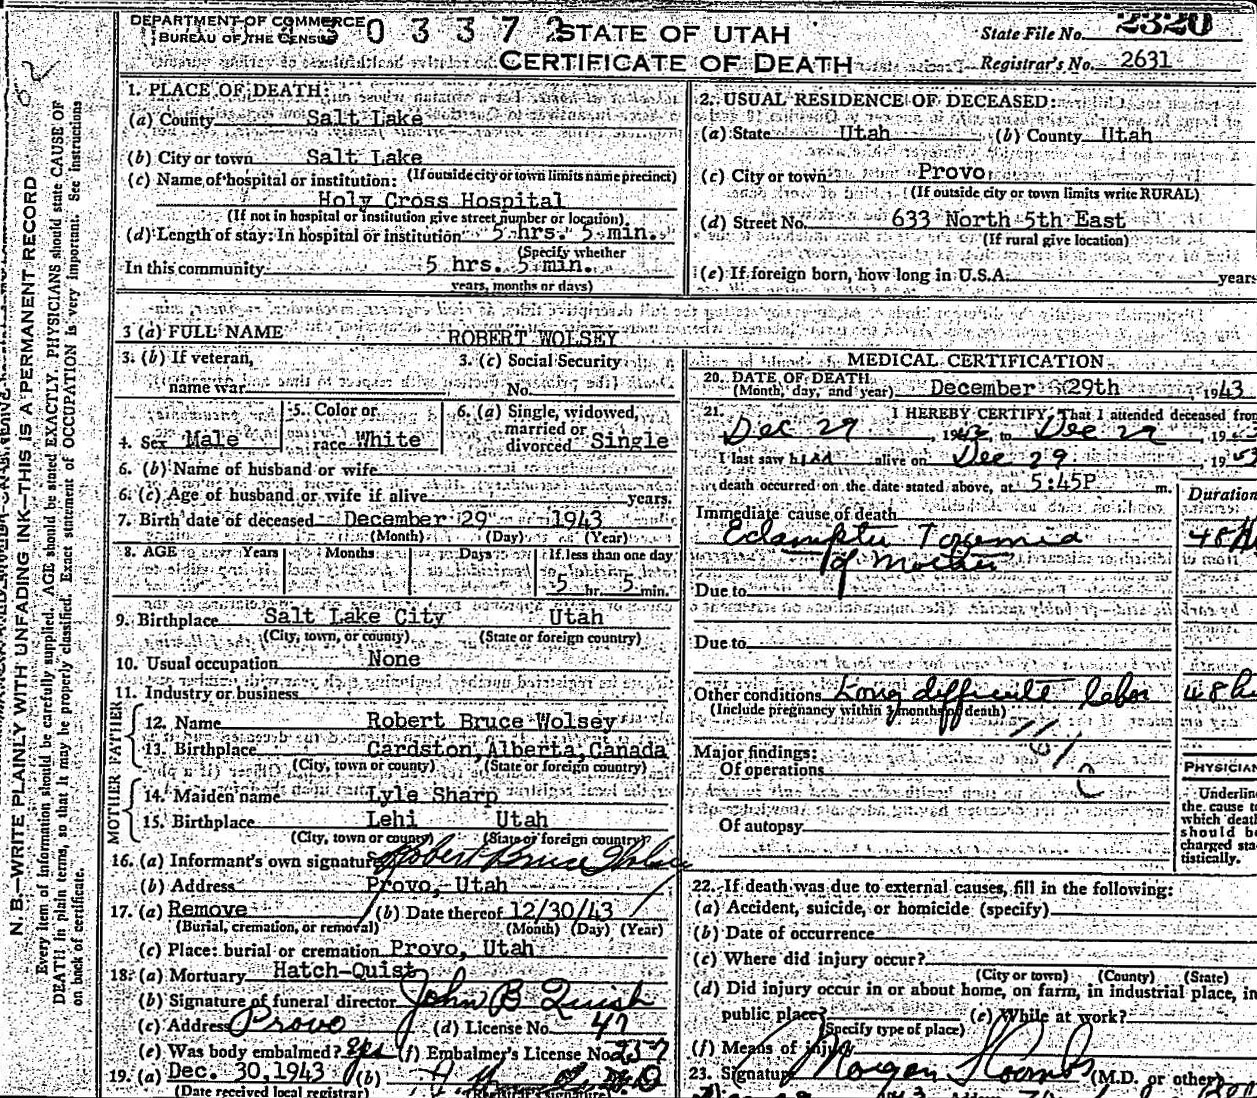 DEPARTMENT OF COMMERCE
BUREAU OF THE CENSUS
0 3 3 7 2
STATE OF UTAH
CERTIFICATE OF DEATH
State File No. 2320
Registrar's No. 2631
N. B.—WRITE PLAINLY WITH UNFADING INK—THIS IS A PERMANENT RECORD
Every item of information should be carefully supplied. AGE should be stated EXACTLY. PHYSICIANS should state CAUSE OF
DEATH in plain terms, so that it may be properly classified. Exact statement of OCCUPATION is very important. See instructions
on back of certificate.
1. PLACE OF DEATH:
(a) County Salt Lake
(b) City or town Salt Lake
(If outside city or town limits name precinct)
(c) Name of hospital or institution:
Holy Cross Hospital
(If not in hospital or institution give street number or location)
(d) Length of stay: In hospital or institution 5 hrs. 5 min.
(Specify whether
In this community 5 hrs. 5 min.
years, months or days)
2. USUAL RESIDENCE OF DECEASED:
(a) State Utah (b) County Utah
(c) City or town Provo
(If outside city or town limits write RURAL)
(d) Street No. 633 North 5th East
(If rural give location)
(e) If foreign born, how long in U.S.A. years
3 (a) FULL NAME ROBERT WOLSEY
3. (b) If veteran,
name war
3. (c) Social Security
No.
4. Sex Male
5. Color or
race White
6. (a) Single, widowed,
married or
divorced Single
6. (b) Name of husband or wife
6. (c) Age of husband or wife if alive years.
7. Birth date of deceased December 29 1943
(Month) (Day) (Year)
8. AGE Years Months Days If less than one day
5 hr. 5 min.
9. Birthplace Salt Lake City Utah
(City, town, or county) (State or foreign country)
10. Usual occupation None
11. Industry or business
FATHER
12. Name Robert Bruce Wolsey
13. Birthplace Cardston, Alberta, Canada
(City, town or county) (State or foreign country)
MOTHER
14. Maiden name Lyle Sharp
15. Birthplace Lehi Utah
(City, town or county) (State or foreign country)
16. (a) Informant's own signature Robert Bruce Wolsey
(b) Address Provo, Utah
17. (a) Remove (b) Date thereof 12/30/43
(Burial, cremation, or removal) (Month) (Day) (Year)
(c) Place: burial or cremation Provo, Utah
18. (a) Mortuary Hatch-Quist
(b) Signature of funeral director John B Quish
(c) Address Provo (d) License No. 47
(e) Was body embalmed? yes (f) Embalmer's License No. 257
19. (a) Dec. 30, 1943 (b)
(Date received local registrar) (Registrar's signature)
MEDICAL CERTIFICATION
20. DATE OF DEATH
(Month, day, and year) December 29th, 1943
21. I HEREBY CERTIFY, That I attended deceased from
Dec 29, 1943, to Dec 29, 1943
I last saw him alive on Dec 29, 1943
death occurred on the date stated above, at 5:45P m.
Duration
Immediate cause of death
Eclamptic Toxemia 48
of Mother
Due to
Due to
Other conditions Long difficult labor 48
(Include pregnancy within 3 months of death)
161
C
Major findings:
Of operations
Of autopsy
PHYSICIAN
Underline
the cause to
which death
should be
charged sta-
tistically.
22. If death was due to external causes, fill in the following:
(a) Accident, suicide, or homicide (specify)
(b) Date of occurrence
(c) Where did injury occur?
(City or town) (County) (State)
(d) Did injury occur in or about home, on farm, in industrial place, in
public place? (e) While at work?
(Specify type of place)
(f) Means of injury
23. Signature Morgan S Coombs (M.D. or other)